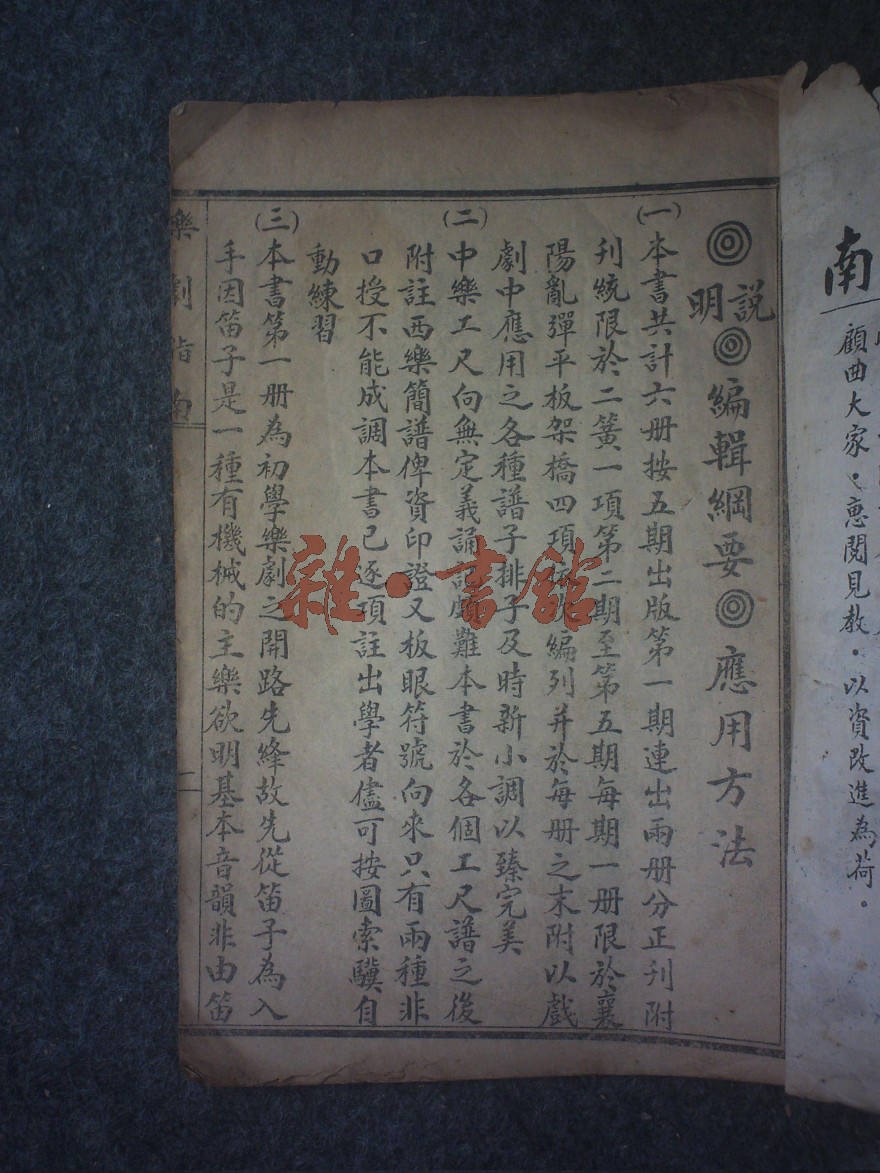 ◎說明◎編輯綱要◎應用方法
(一)本書共計六册按五期出版第一期連出兩册分正刊附
刊統限於二簧一項第二期至第五期每期一册限於襄
陽亂彈平板架橋四項編列并於每册之末附以戲
劇中應用之各種譜子排子及時新小調以臻完美
(二)中樂工尺向無定義誦記頗難本書於各個工尺譜之後
附註西樂簡譜俾資印證又板眼符號向來只有兩種非
口授不能成調本書已逐項註出學者儘可按圖索驥自
動練習
(三)本書第一册為初學樂劇之開路先絳故先從笛子為入
手因笛子是一種有機械的主樂欲明基本音韻非由笛
樂劇指南
二
南
顧曲大家惠閱見教·以資改進為荷·
雜·書館